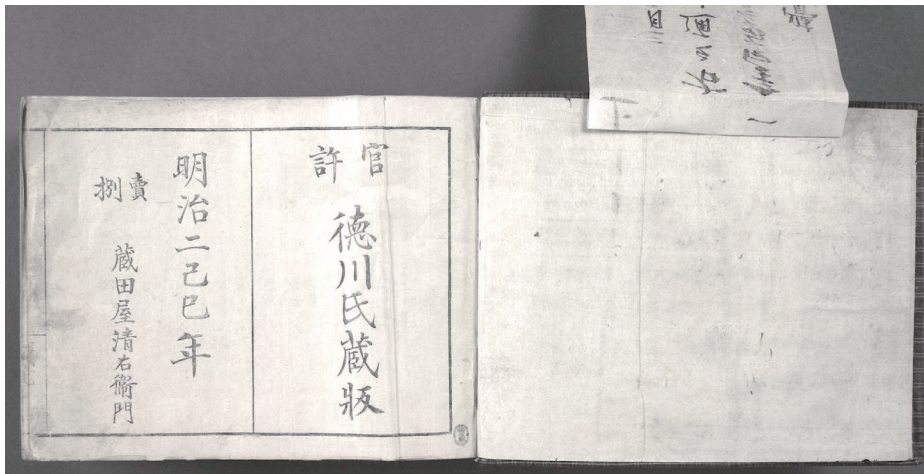 官許
徳川氏蔵版
明治二己巳年
賣捌
蔵田屋清右衛門